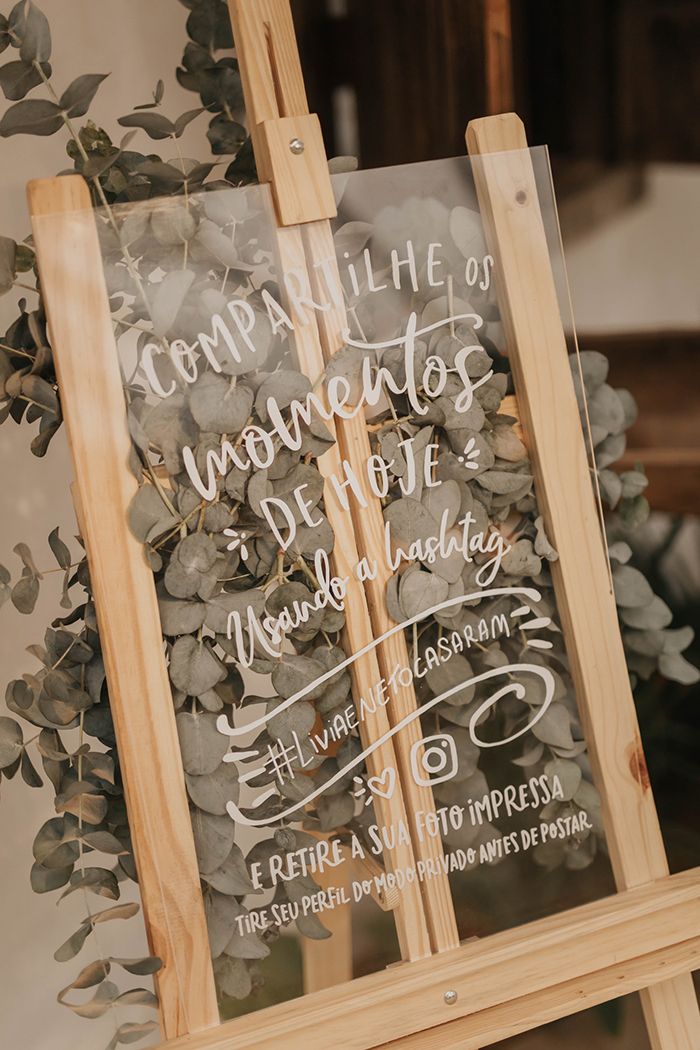 COMPARTILHE OS
momentos
DE HOJE
Usando a hashtag
#LIVIAENETOCASARAM
E RETIRE A SUA FOTO IMPRESSA
TIRE SEU PERFIL DO MODO PRIVADO ANTES DE POSTAR